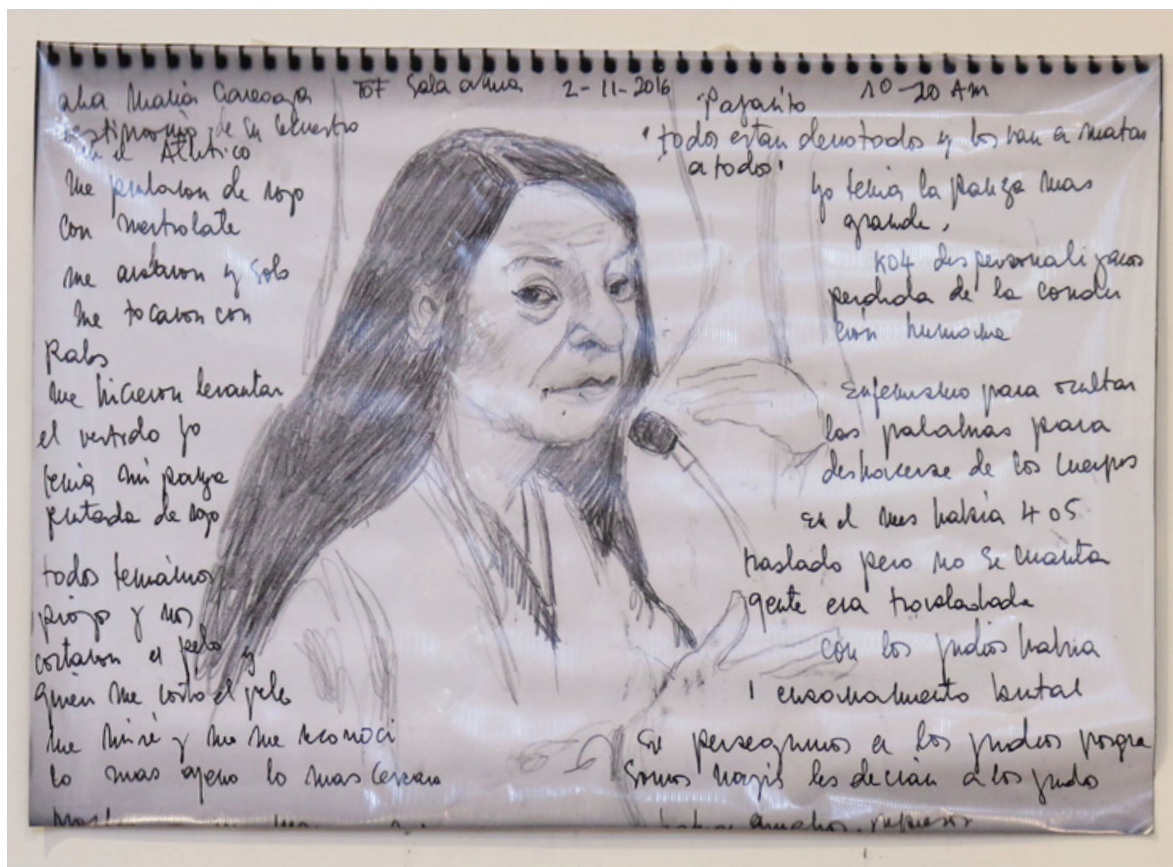 Ana María Careaga
testimonio de su secuestro
en el Atlético
me pintaron de rojo
con mertiolate
me ataron y solo
me tocaron con
palos
me hicieron levantar
el vestido yo
tenía mi panza
pintada de rojo
todos teníamos
piojo y nos
cortaron el pelo y
quien me cortó el pelo
me miré y no me reconocí
lo mas ajeno lo mas cercano
TOF Sala 2-11-2016
10-20 AM
"Pajarito
"todos estan derrotados y los van a matar
a todos"
yo tenia la panza mas
grande,
K04 despersonalizacos
perdida de la condi
ción humana
Eufemismo para ocultar
las palabras para
deshacerse de los cuerpos
En el mes habia 4 o 5
traslado pero no se cuanta
gente era trasladada
con los judios habia
1 ensañamiento brutal
Si perseguimos a los judios porque
somos nazis les decian a los judio